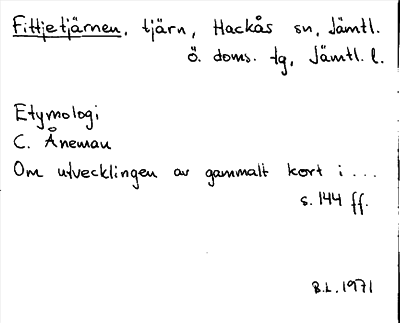 Fittjetjärnen, tjärn, Hackås sn, Jämtl.
Ö. doms. tg, Jämtl. l.
Etymologi
C. Åneman
Om utvecklingen av gammalt kort i ...
s. 144 ff.
B.L. 1971